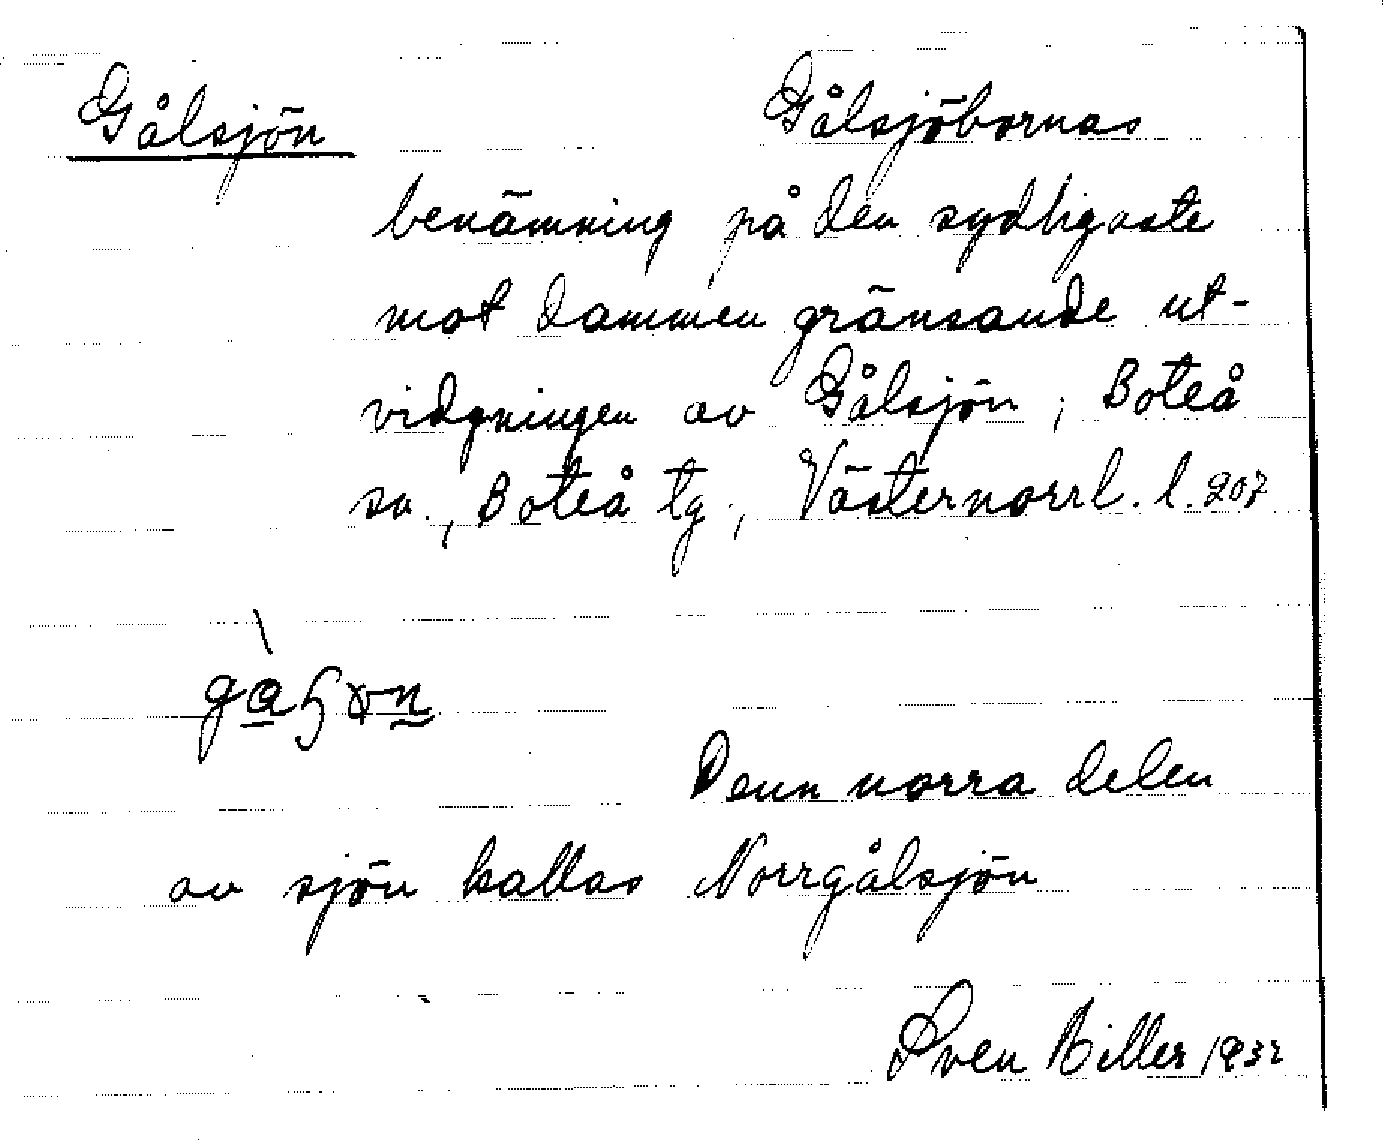 Gålsjön Gålsjöbornas
benämning på den sydligaste
mot dammen gränsande ut-
vidgningen av Gålsjön, Boteå
sn., Boteå tg., Västernorrl. l. 207
Denn norra delen
av sjön kallas Norrgålsjön
Sven Biller 1932